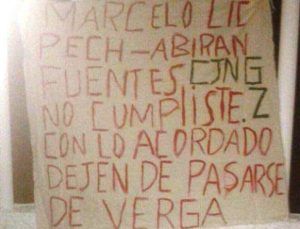 MARCELO LIC
PECH-ABIRAN
FUENTES, CJNG
NO CUMPLISTE. Z
CON LO ACORDADO
DEJEN DE PASARSE
DE VERGA